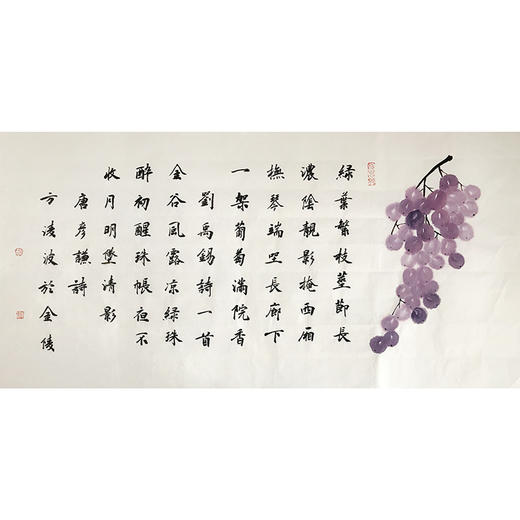 綠葉繁枝莖節長
濃陰靚影掩西廂
撫琴端坐長廊下
一架葡萄滿院香
劉禹錫詩一首
金谷風露凉綠珠
醉初醒珠帳夜不
收月明墮清影
唐彥謙詩
方淩波於金陵